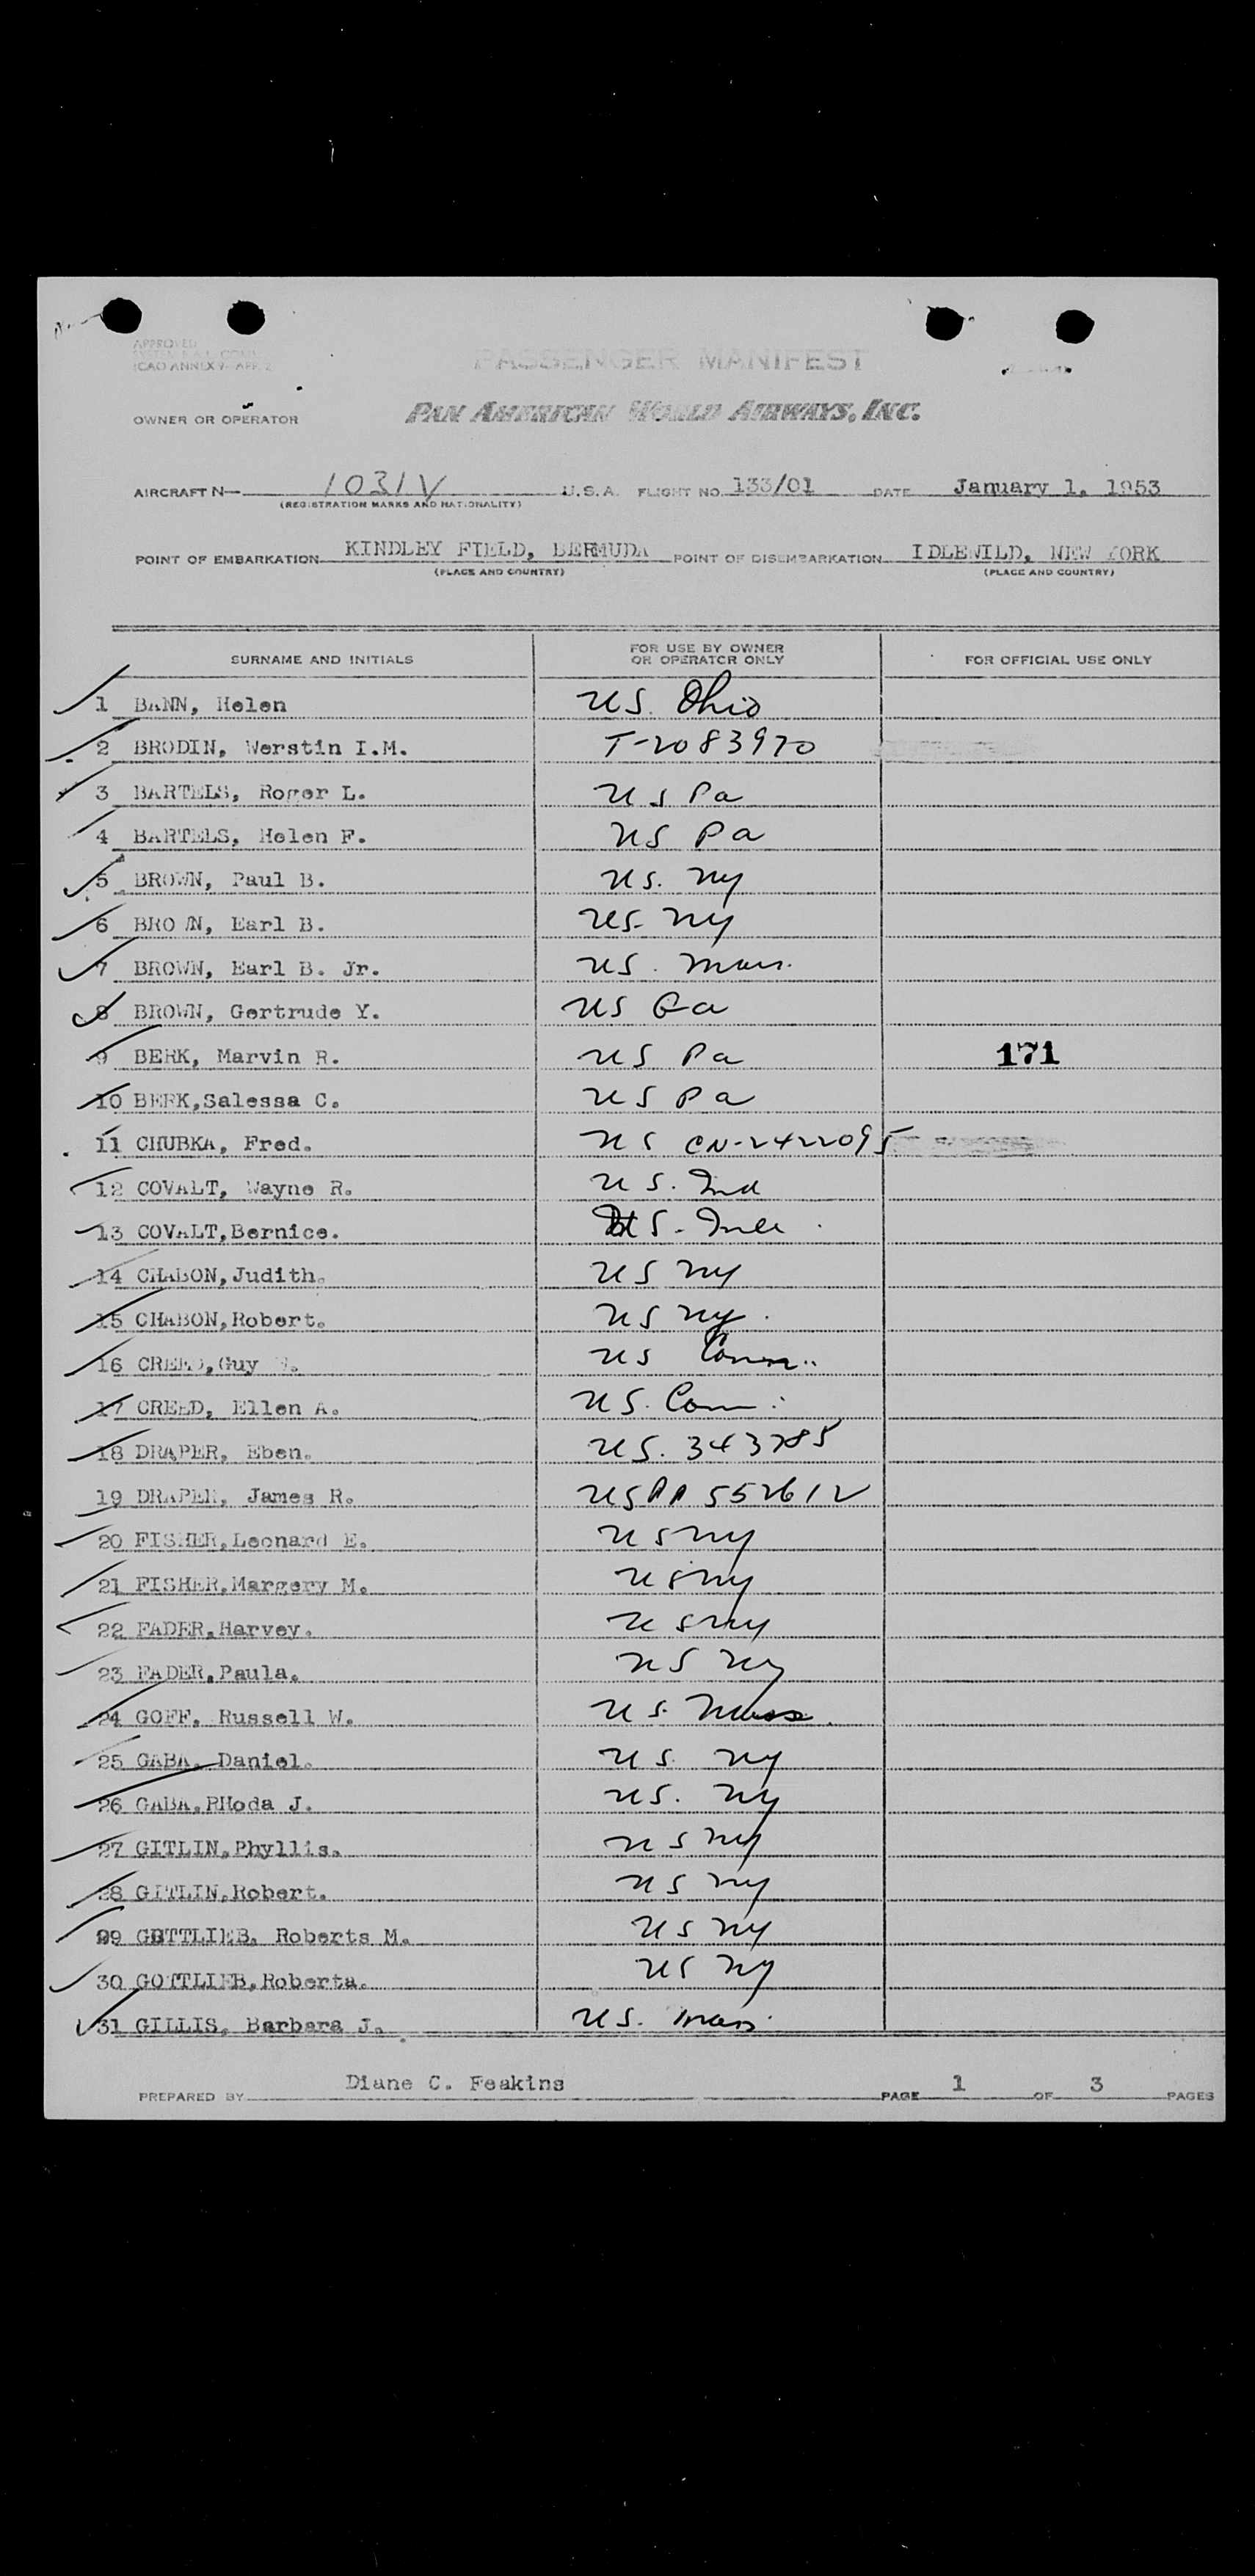 APPROVED
ICAO ANNEX 9 APP. 2
PASSENGER MANIFEST
OWNER OR OPERATOR PAN AMERICAN WORLD AIRWAYS, INC.
AIRCRAFT N— 1031V U.S.A. FLIGHT NO. 133/01 DATE January 1, 1953
(REGISTRATION MARKS AND NATIONALITY)
POINT OF EMBARKATION KINDLEY FIELD, BERMUDA POINT OF DISEMBARKATION IDLEWILD, NEW YORK
(PLACE AND COUNTRY) (PLACE AND COUNTRY)
SURNAME AND INITIALS FOR USE BY OWNER OR OPERATOR ONLY FOR OFFICIAL USE ONLY
1 BANN, Helen US. Ohio
2 BRODIN, Werstin I.M. T-2083970
3 BARTELS, Roger L. US Pa
4 BARTELS, Helen F. US Pa
5 BROWN, Paul B. US. NY
6 BRO N, Earl B. US- NY
7 BROWN, Earl B. Jr. US. Mass.
8 BROWN, Gertrude Y. US Ga
9 BERK, Marvin R. US Pa 171
10 BERK,Salessa C. US Pa
11 CHUBKA, Fred. US CN-2422095
12 COVALT, Wayne R. US. Ind
13 COVALT,Bernice. US-
14 CHABON,Judith. US NY
15 CHABON,Robert. US NY.
16 CREED,Guy US Conn..
17 CREED, Ellen A. US. Conn.
18 DRAPER, Eben. US. 343785
19 DRAPER, James R. US PP 552612
20 FISHER,Leonard E. US NY
21 FISHER,Margery M. US NY
22 FADER,Harvey. US NY
23 FADER,Paula. US NY
24 GOFF, Russell W. US. Mass.
25 GABA, Daniel. US. NY
26 GABA,RHoda J. US. NY
27 GITLIN,Phyllis. US NY
28 GITLIN,Robert. US NY
29 GOTTLIEB, Roberts M. US NY
30 GOTTLIEB,Roberta. US NY
31 GILLIS, Barbara J. US. Mass.
PREPARED BY Diane C. Feakins PAGE 1 OF 3 PAGES